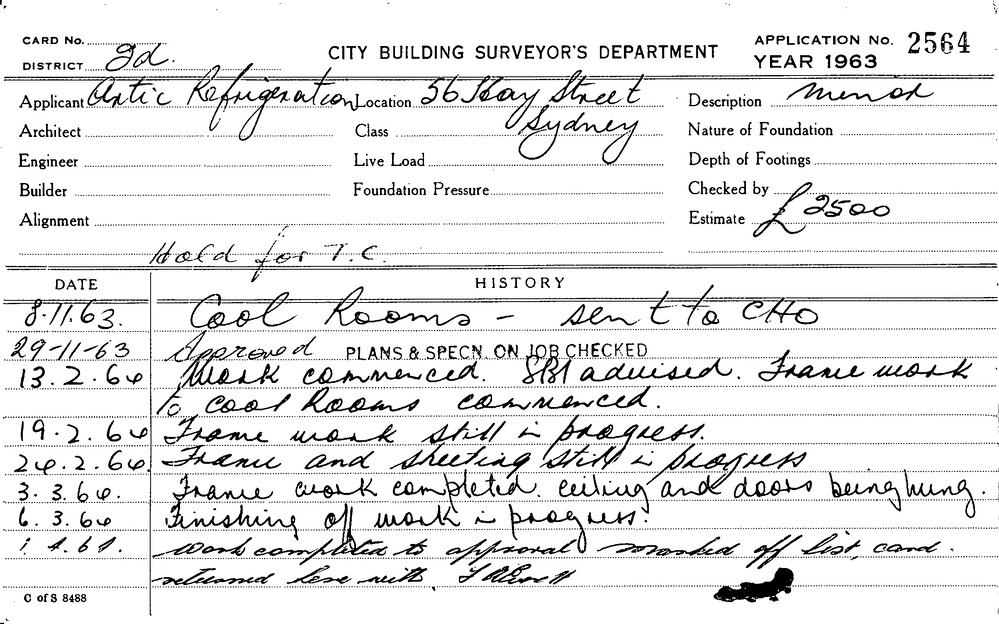 CARD No.
DISTRICT 2d.
CITY BUILDING SURVEYOR'S DEPARTMENT
APPLICATION No. 2564
YEAR 1963
Applicant Artic Refrigeration Location 56 Hay Street Description Menor
Architect Class Sydney Nature of Foundation
Engineer Live Load Depth of Footings
Builder Foundation Pressure Checked by
Alignment Estimate £2500
Hold for T.C.
DATE HISTORY
8.11.63. Cool Rooms - sent to CHO
29-11-63 Approved PLANS & SPECN. ON JOB CHECKED
13.2.64 Work commenced. SBI advised. Frame work
to cool Rooms commenced.
19.2.64 Frame work still in progress.
24.2.64. Frame and sheeting still in progress
3.3.64. Frame work completed. ceiling and doors being hung.
6.3.64 Finishing off work in progress.
1.4.64. work completed to approval marked off list, card.
returned here with.
C of S 8488